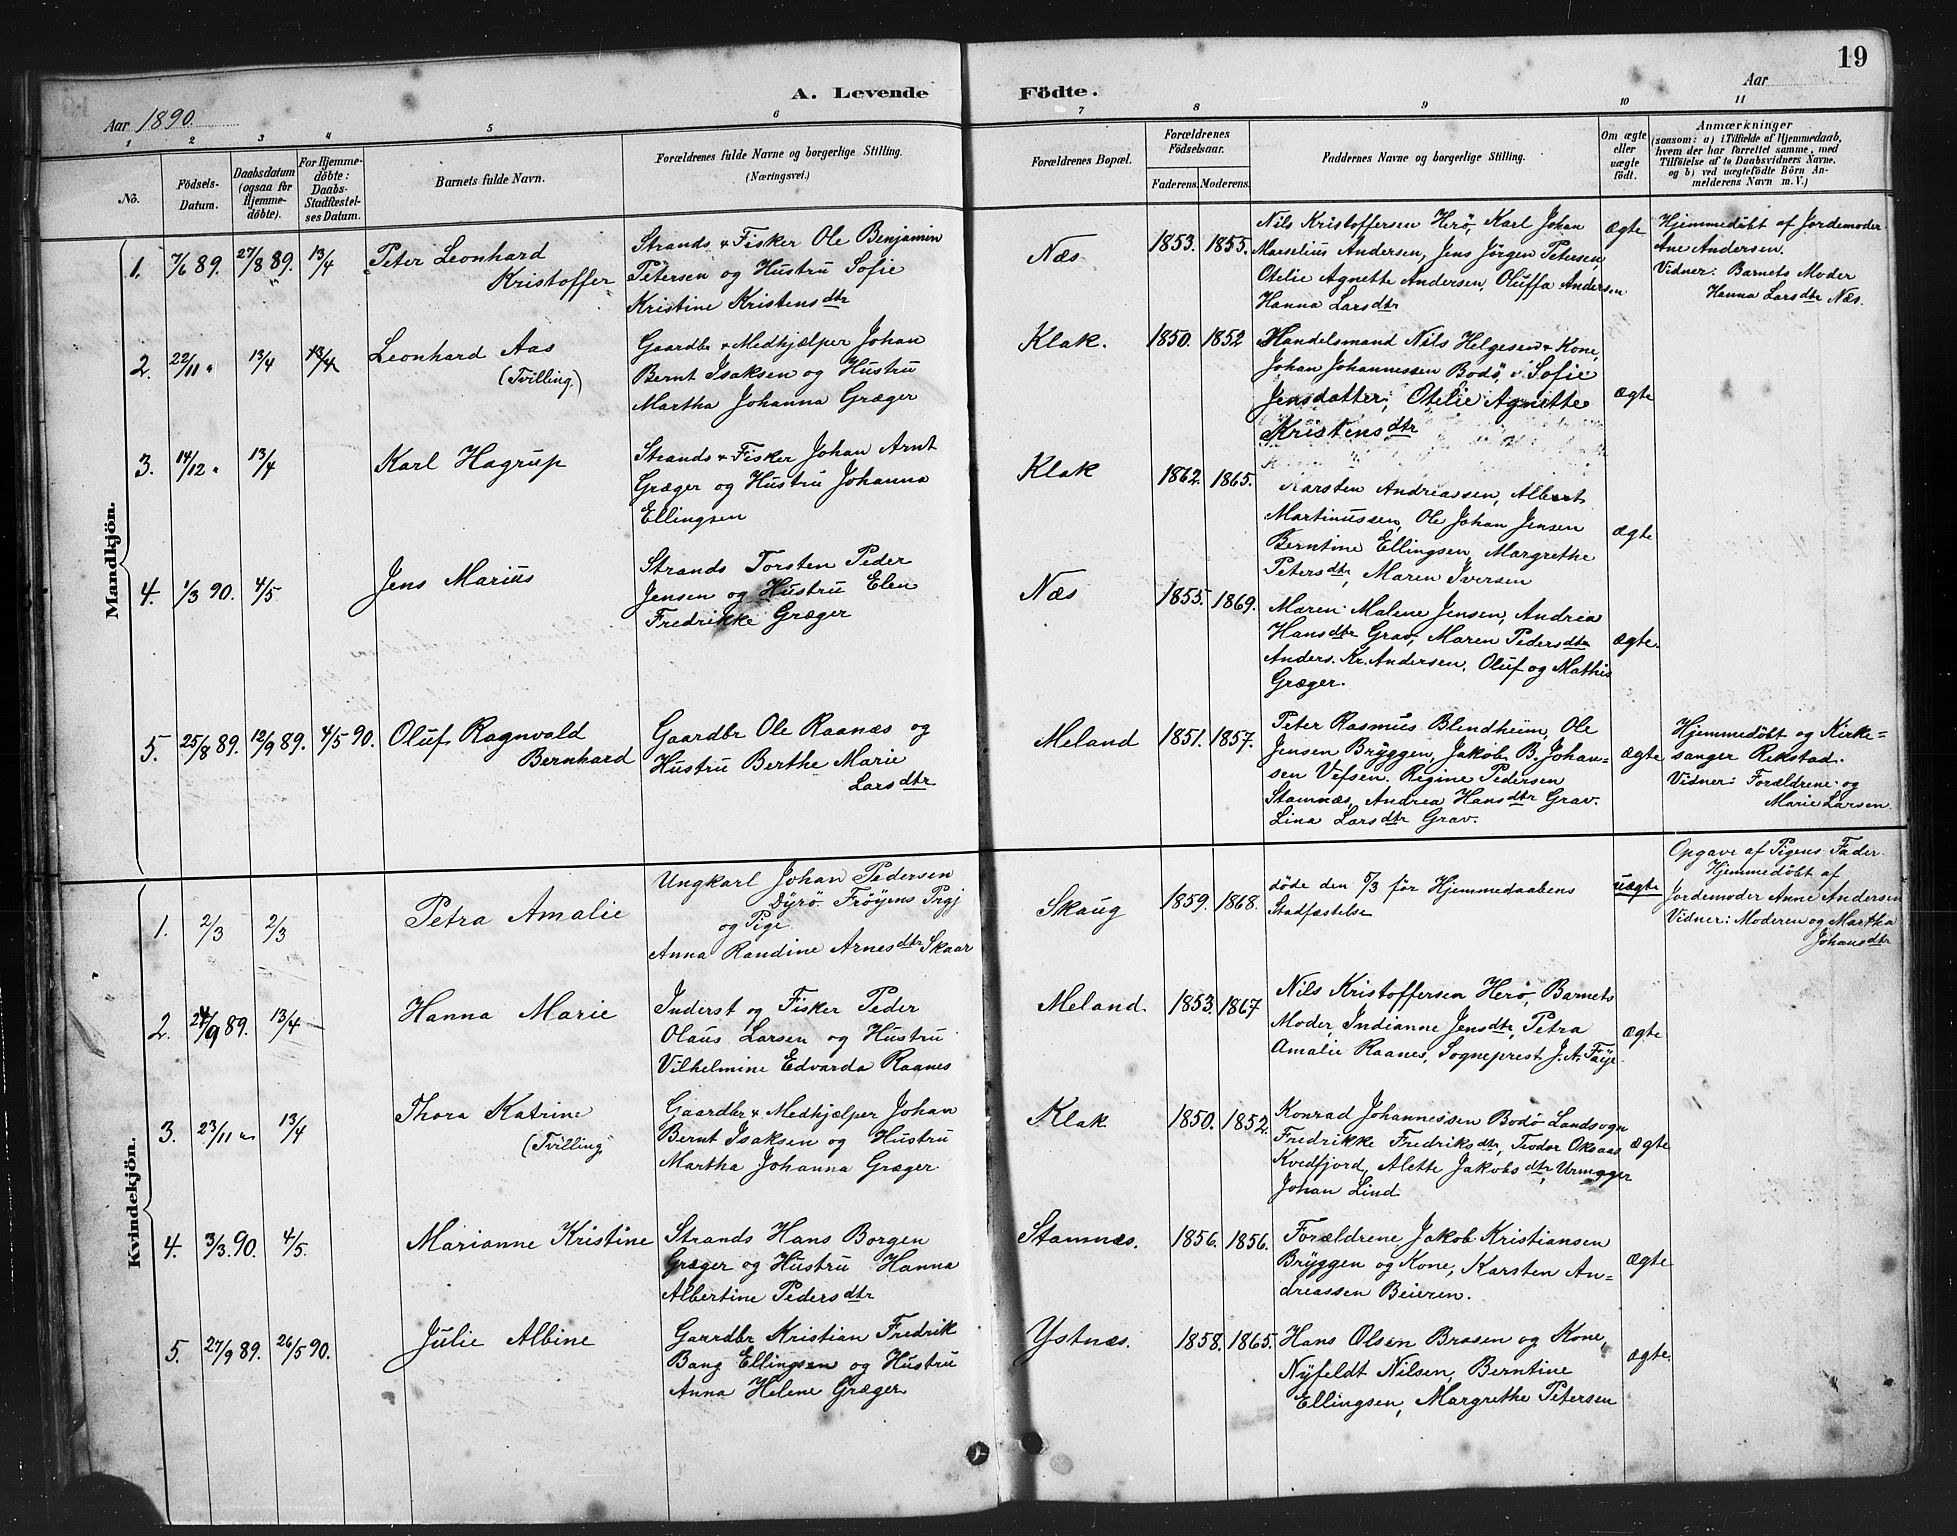 19
A. Levende Födte.
Aar 1890.
Aar
1 2 3 4 5 6 7 8 9 10 11
No.
Födsels-Datum.
Daabsdatum (ogsaa for Hjemmedöbte).
For Hjemmedöbte: Daabs-Stadfæstelses Datum.
Barnets fulde Navn.
Forældrenes fulde Navne og borgerlige Stilling.
(Næringsvei.)
Forældrenes Bopæl.
Forældrenes Födselsaar.
Faderens. Moderens.
Faddernes Navne og borgerlige Stilling.
Om ægte eller uægte födt.
Anmærkninger
(saasom: a) i Tilfælde af Hjemmedaab,
hvem der har forrettet samme, med
Tilföielse af to Daabsvidners Navne,
og b) ved uægtefödte Börn An-
melderens Navn m. V.)
Mandkjön.
1. 7/6 89. 27/8 89. 13/4
Peter Leonhard
Kristoffer
Strands. & Fisker Ole Benjamin
Petersen og Hustru Sofie
Kristine Kristensdtr
Næs
1853. 1855.
Nils Kristoffersen Herö, Karl Johan
Marselius Andersen, Jens Jörgen Petersen,
Otelie Agnette Andersen, Oluffa Andersen
Hanna Larsdtr
ægte
Hjemmedöbt af Jordemoder
Ane Andersen.
Vidner: Barnets Moder
Hanna Larsdtr Næs.
2. 22/11 " 13/4 13/4
Leonhard Aas
(Tvilling)
Gaardbr & Medhjælper Johan
Bernt Isaksen og Hustru
Martha Johanna Græger
Klak.
1850. 1852
Handelsmand Nils Helgesen & Kone,
Johan Johannessen Bodö, Sofie
Jensdatter, Otelie Agnette
Kristensdtr
ægte
3. 14/12 " 13/4
Karl Hagrup
Strands & Fisker Johan Arnt
Græger og Hustru Johanna
Ellingsen
Klak
1862. 1865.
Karsten Andreassen, Albert
Martinussen, Ole Johan Jensen
Berntine Ellingsen, Margrethe
Petersdtr, Maren Iversen
ægte
4. 1/3 90. 4/5
Jens Marius
Strands Torsten Peder
Jensen og Hustru Elen
Fredrikke Græger
Næs
1855. 1869.
Maren Malene Jensen, Andrea
Hansdtr Grav, Maren Pedersdtr
Anders. Kr. Andersen, Oluf og Mathis
Græger.
ægte.
5. 25/8 89. 12/9 89. 4/5 90.
Oluf Ragnvald
Bernhard
Gaardbr Ole Raanæs og
Hustru Berthe Marie
Larsdtr
Meland
1851. 1857.
Peter Rasmus Blendheim, Ole
Jensen Bryggen, Jakob B. Johan-
sen Vefsen. Regine Pedersen
Stamnæs, Andrea Hansdtr Grav.
Lina Larsdtr Grav.
ægte
Hjemmedöbt og Kirke=
sanger Rekstad.
Vidner: Forældrene og
Marie Larsen.
Kvindekjön.
1. 2/3 2/3
Petra Amalie
Ungkarl Johan Pedersen
Dyrö Fröyens Prgj
og Pige
Anna Randine Arnesdtr Skaar
Skaug
1859. 1868.
döde den 5/3 för Hjemmedaabens
Stadfæstelse
uægte
Opgave af Pigens Fader.
Hjemmedöbt af
Jordemoder Anne Andersen
Vidner: Moderen og Martha
Johansdtr
2. 24/9 89. 13/4
Hanna Marie
Inderst og Fisker Peder
Olaus Larsen og Hustru
Vilhelmine Edvarda Raanes
Meland.
1853. 1867
Nils Kristoffersen Herö, Barnets
Moder, Indianne Jensdtr, Petra
Amalie Raanes, Sogneprest J. A. Faye.
ægte
3. 23/11 " 13/4
Thora Katrine
(Tvilling)
Gaardbr & Medhjælper Johan
Bernt Isaksen og Hustru
Martha Johanna Græger.
Klak
1850. 1852.
Konrad Johannessen Bodö Landsogn
Fredrikke Fredriksdtr, Teodor Oksaas
Kvedfjord, Alette Jakobsdtr, Urmager
Johan Lind
ægte
4. 3/3 90. 4/5.
Marianne Kristine
Strands Hans Borgen
Græger og Hustru Hanna
Albertine Pedersdtr
Stamnæs.
1856. 1856.
Forældrene Jakob Kristiansen
Bryggen og Kone, Karsten An=
dreassen Beieren.
ægte
5. 27/9 89. 26/5 90.
Julie Albine
Gaardbr Kristian Fredrik
Bang Ellingsen og Hustru
Anna Helene Græger
Ystnæs.
1858. 1865.
Hans Olsen Brasen og Kone,
Nyfeldt Nilsen, Berntine
Ellingsen, Margrethe Petersen
ægte.